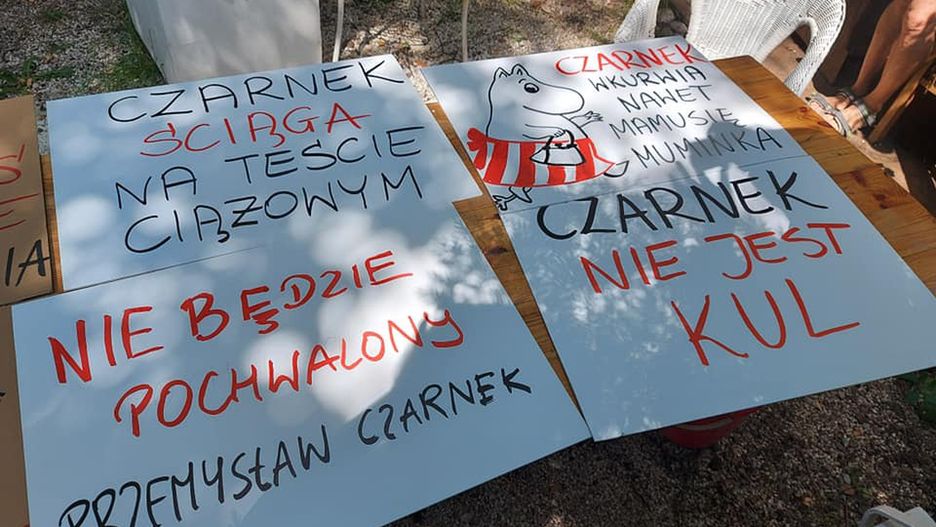 CZARNEK
ŚCIĄGA
NA TEŚCIE
CIĄŻOWYM
CZARNEK
WKURWIA
NAWET
MAMUSIĘ
MUMINKA
NIE BĘDZIE
POCHWALONY
PRZEMYSŁAW CZARNEK
CZARNEK
NIE JEST
KUL
IA